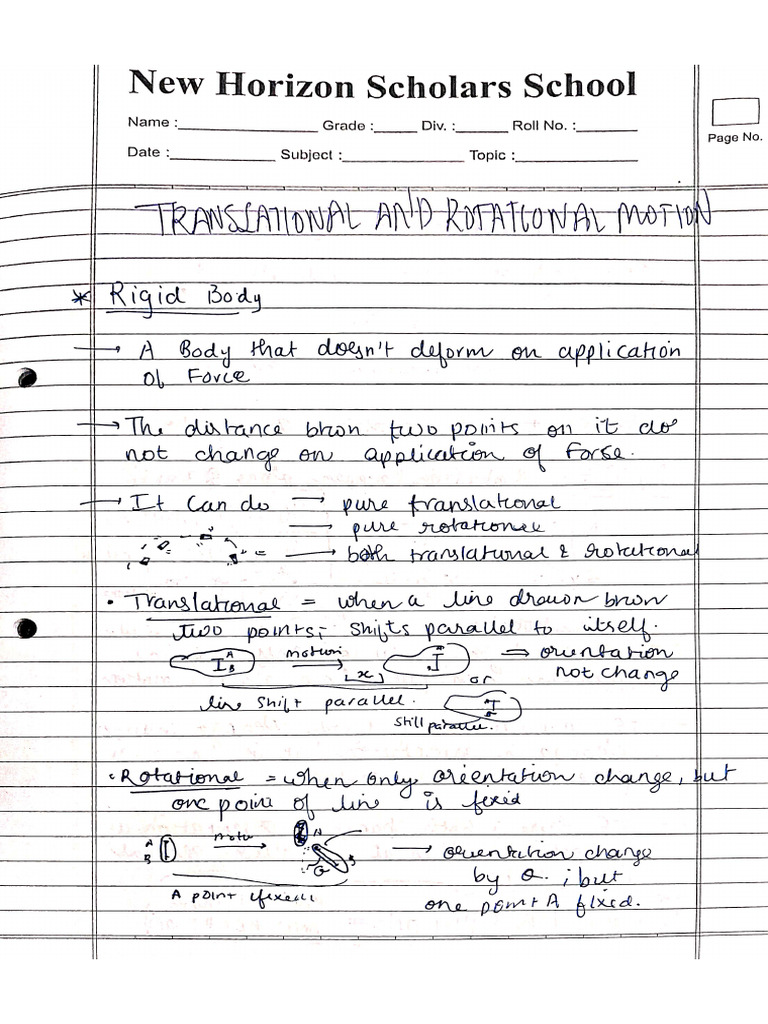 New Horizon Scholars School
Name : Grade : Div. : Roll No. :
Page No.
Date : Subject : Topic :
TRANSLATIONAL AND ROTATIONAL MOTION
* Rigid Body
→ A Body that doesn't deform on application
of Force
→ The distance btwn two points on it do
not change on application of Forse.
→ It can do → pure translational
→ pure rotational
→ both translational & rotational
• Translational = when a line drawn btwn
two points, shifts parallel to itself.
A B motion x ⇒ orientation
or not change
line shift parallel.
still parallel.
• Rotational = when only orientation change, but
one point of line is fixed
A B A B θ → orientation change
by θ. ; but
A point fixed
one point A fixed.